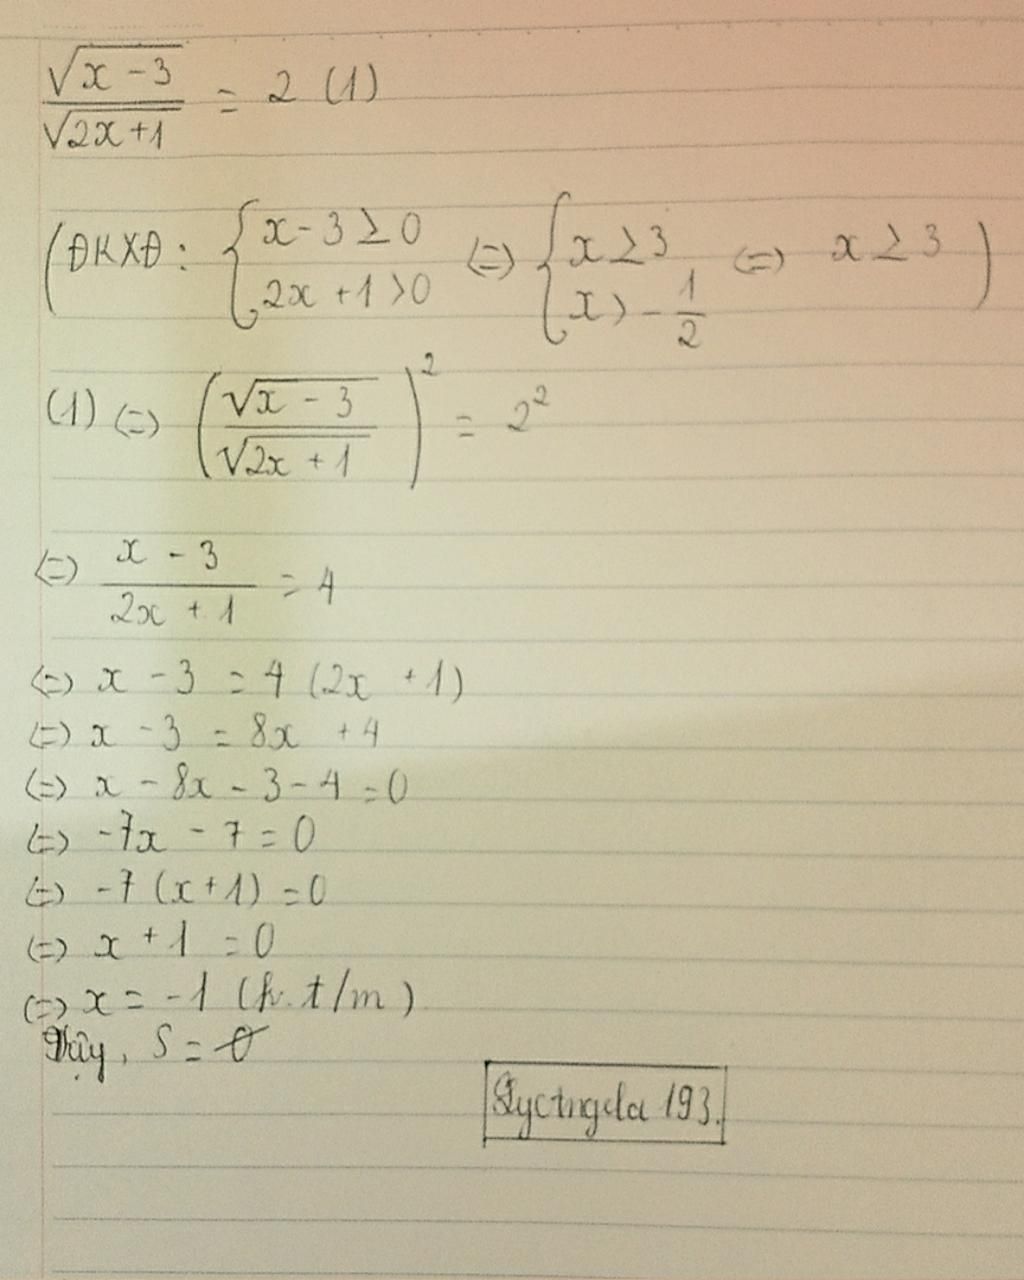 √(x - 3) / √(2x + 1) = 2 (1)
(ĐKXĐ: { x - 3 ≥ 0 ; 2x + 1 > 0 (=) { x ≥ 3 ; x > - 1/2 (=) x ≥ 3 )
(1) (=) ( √(x - 3) / √(2x + 1) )² = 2²
(=) (x - 3) / (2x + 1) = 4
(=) x - 3 = 4 (2x + 1)
(=) x - 3 = 8x + 4
(=) x - 8x - 3 - 4 = 0
(=) -7x - 7 = 0
(=) -7 (x + 1) = 0
(=) x + 1 = 0
(=) x = -1 (k. t/m)
Vậy, S = ∅
193.